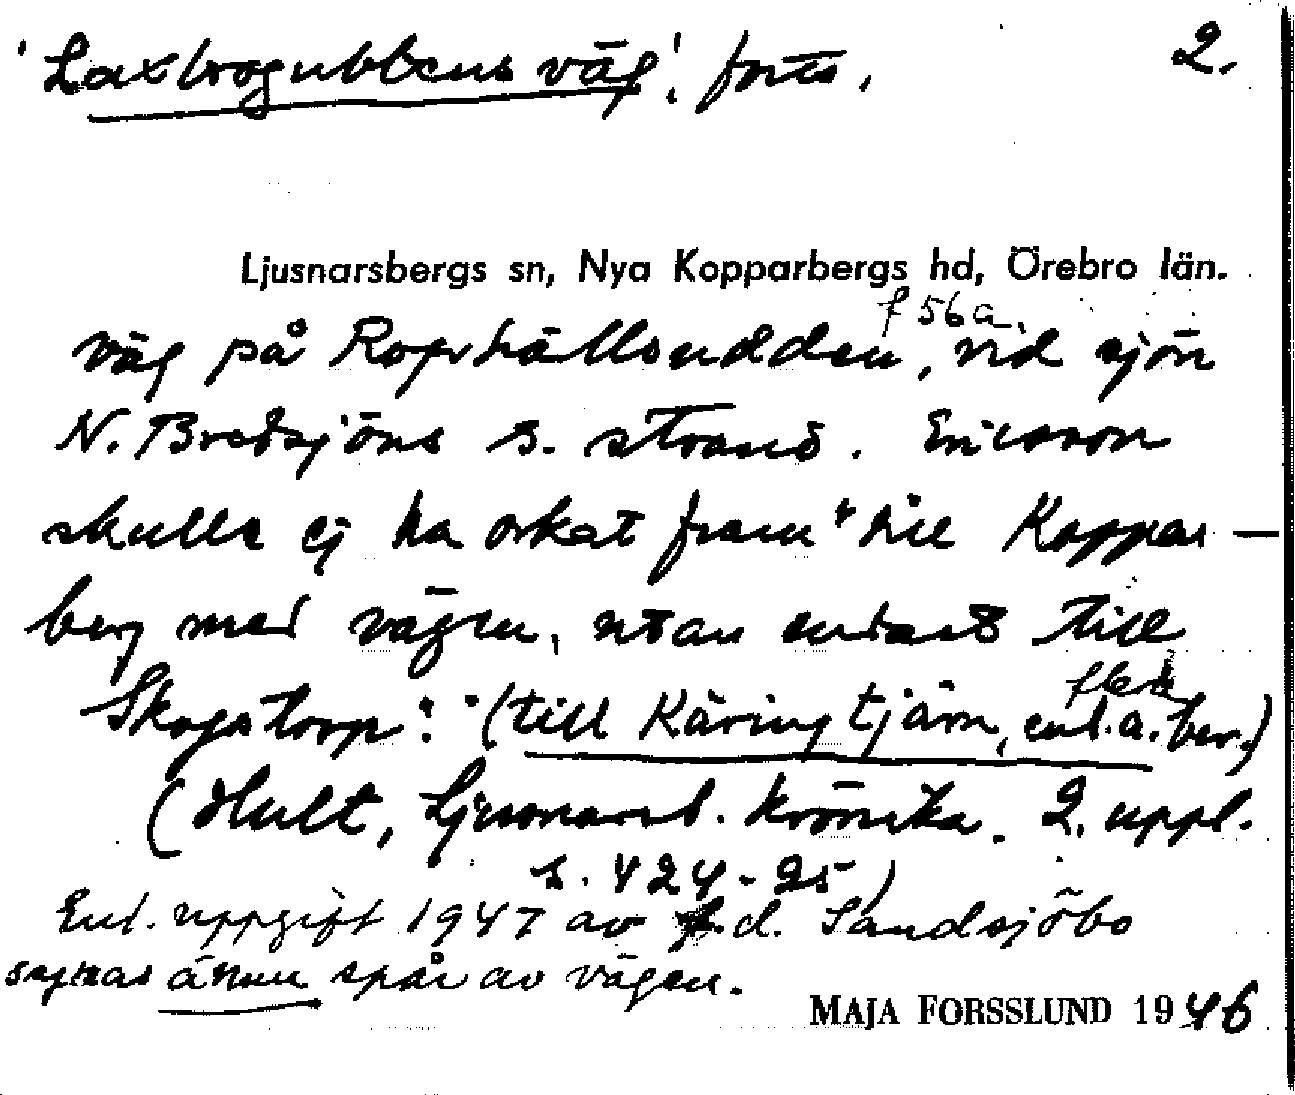 'Laxbrogubbens väg', forts. 2.
Ljusnarsbergs sn, Nya Kopparbergs hd, Örebro län.
f 56a.
väg på Roprhällsudden, vid sjön
N. Bredsjöns s. strand. Ericsson
skulle ej ha orkat fram till Koppar-
berg med vägen, utan endast till
Skogstorp". (till Käringtjärn, enl. a. ber.)
(Hult, Ljusnarsb. krönika. 2. uppl.
s. 424-25)
Enl. uppgift 1947 av f.d. Sandsjöbo
saknas ännu spår av vägen.
MAJA FORSSLUND 1946